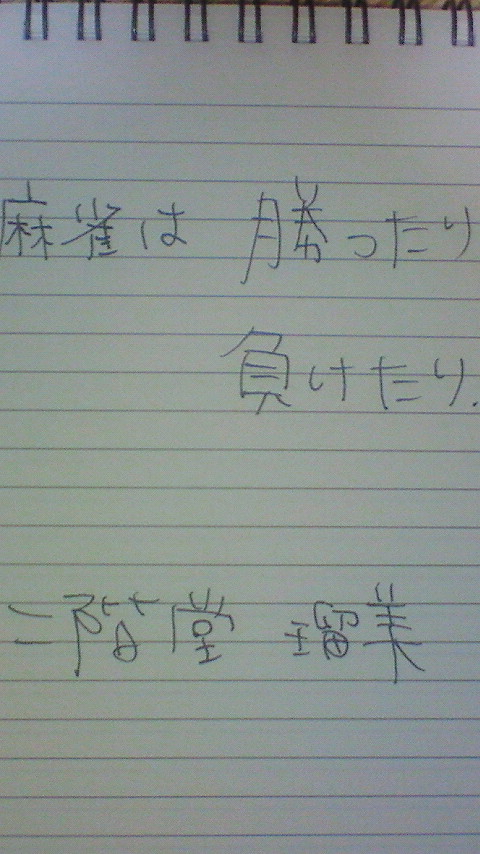 麻雀は 勝ったり
負けたり.
二階堂 瑠美